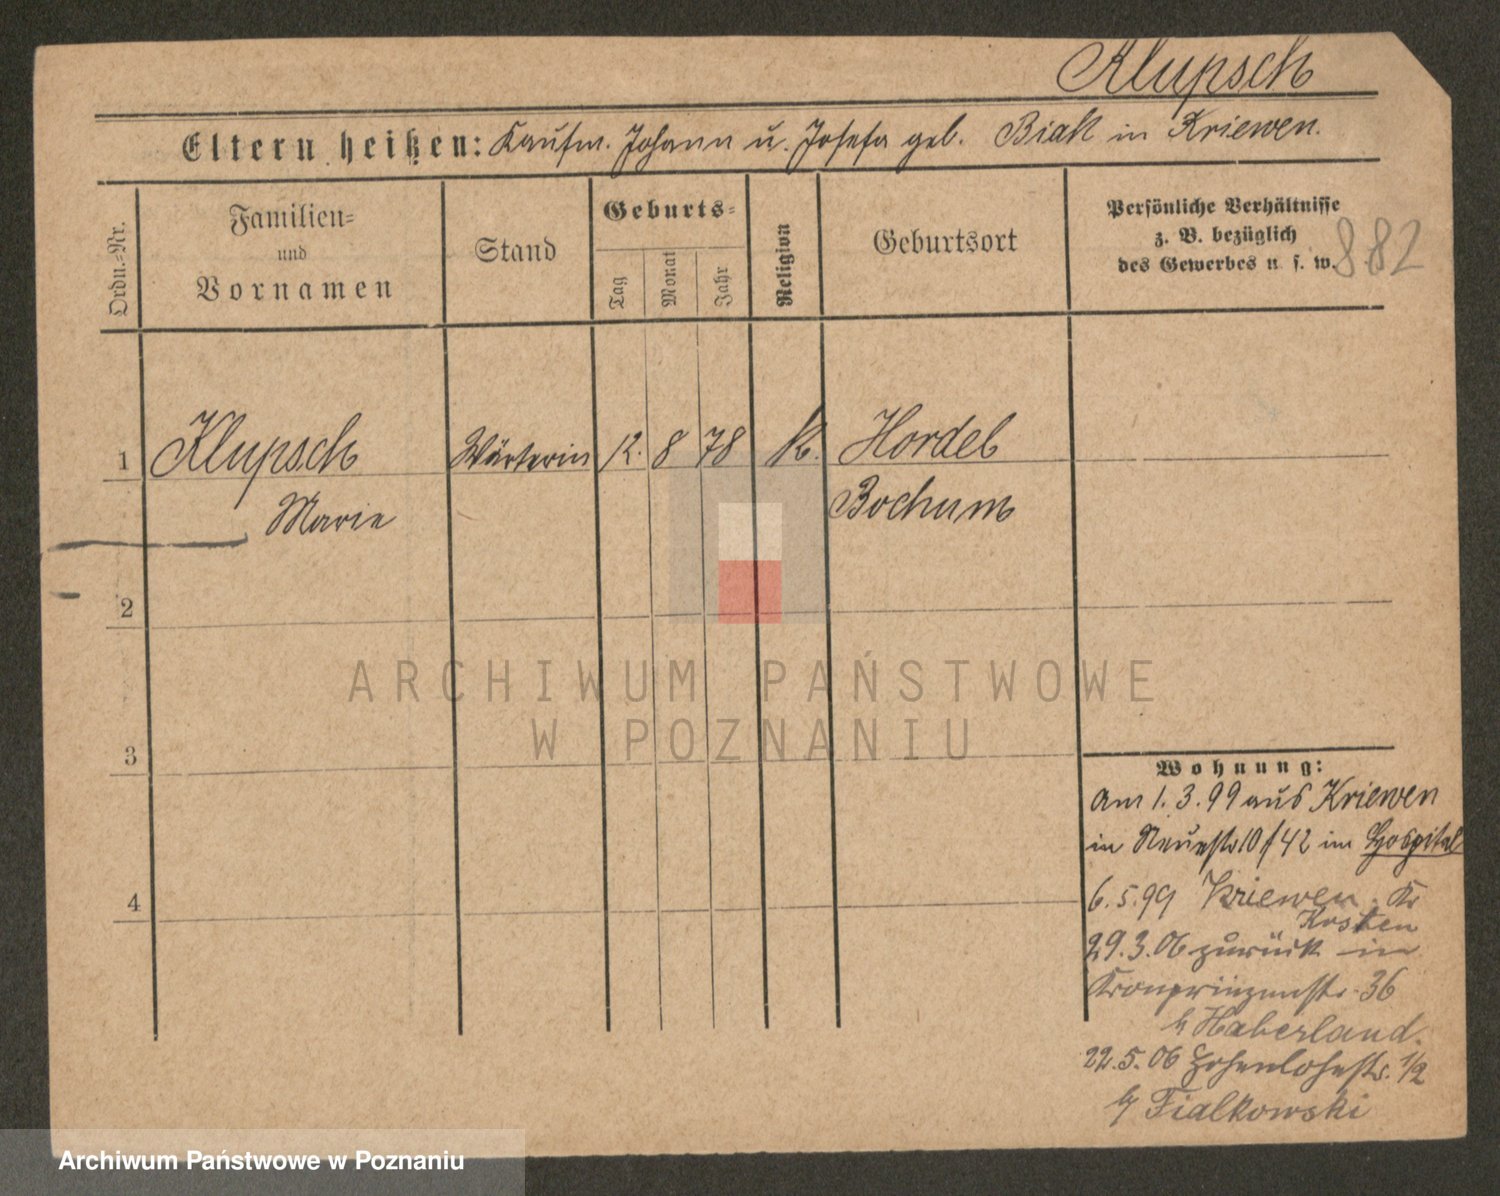 Klupsch
Eltern heißen: Kaufm. Johann u. Josefa geb. Biak in Kriewen.
Ordn.-Nr.
Familien-
und
Vornamen
Stand
Geburts-
Tag
Monat
Jahr
Religion
Geburtsort
Persönliche Verhältnisse
z. B. bezüglich
des Gewerbes u. s. w.
882
1 Klupsch Wärterin 12. 8 78 k. Hordel
Marie Bochum
2
3
4
Wohnung:
Am 1.3.99 aus Kriewen
in Neuestr 10/42 im Hospital
6.5.99 Kriewen. Kr
Kosten
29.3.06 zurück in
Kronprinzenstr. 36
b Haberland.
22.5.06 Hohenlohestr. 1/2
b Fialkowski
ARCHIWUM PAŃSTWOWE
W POZNANIU
Archiwum Państwowe w Poznaniu